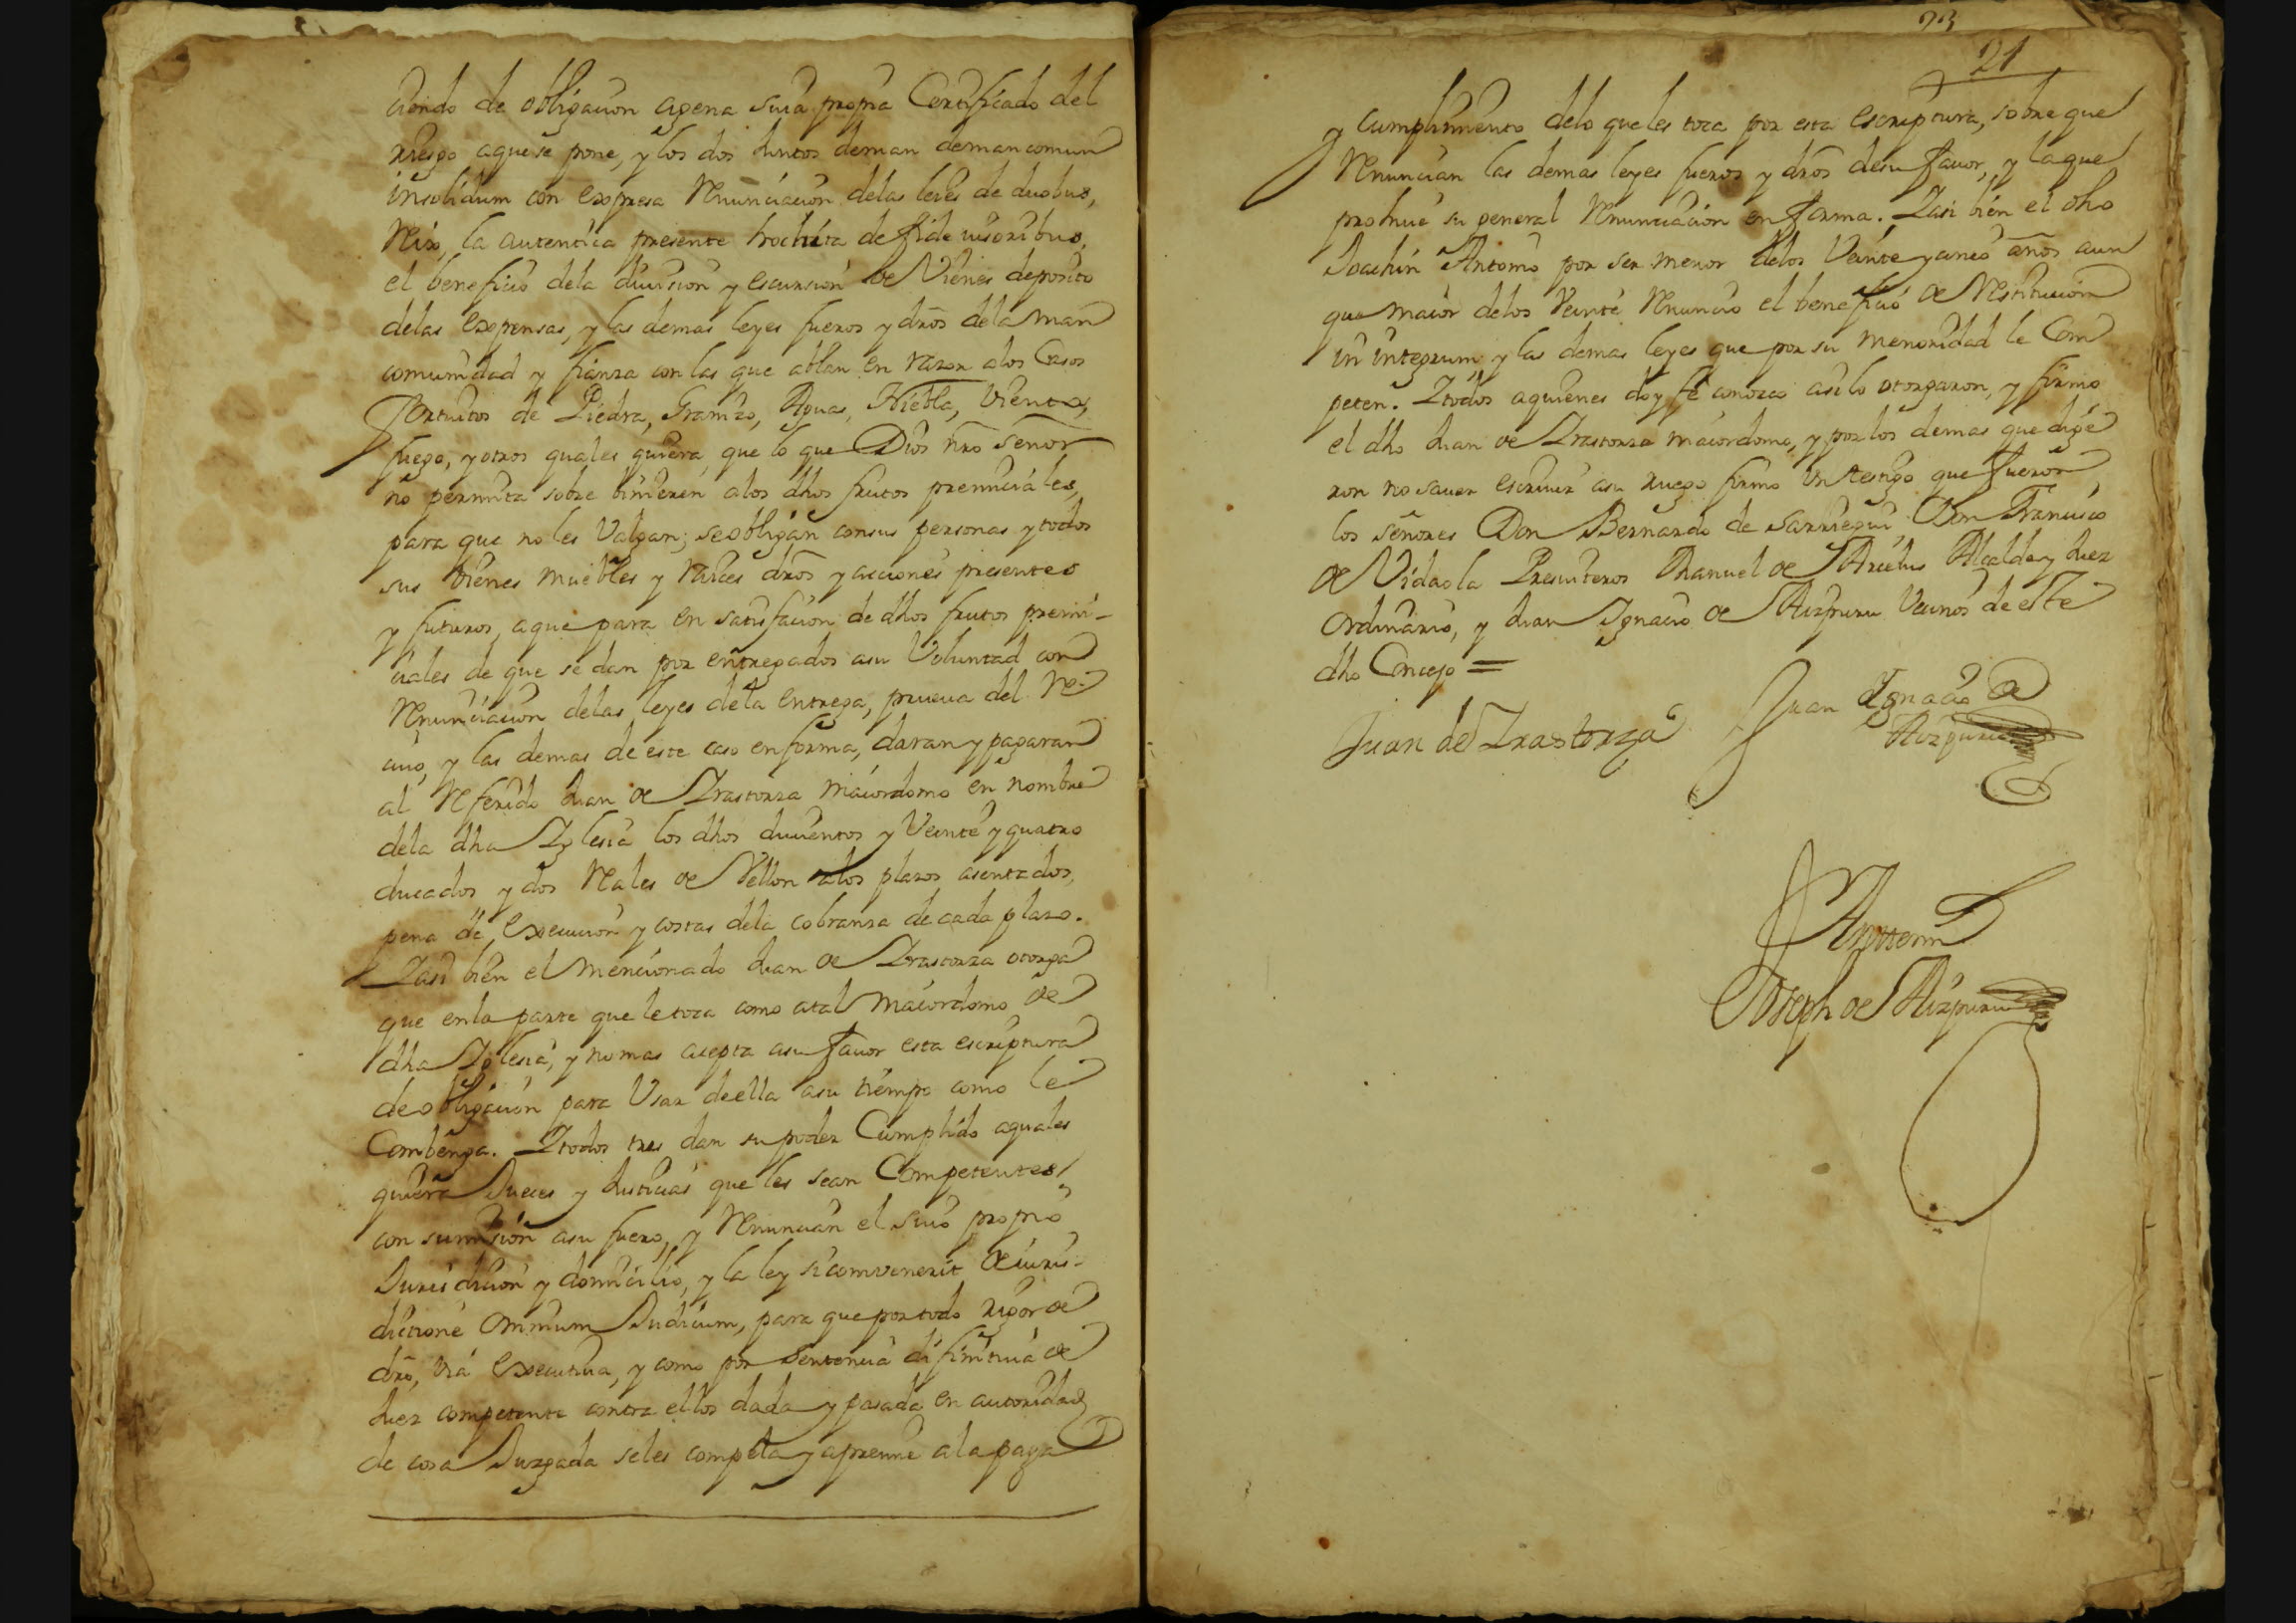 ciendo de obligacion agena suia propia Certificado del
riesgo aquese pone, y los dos Juntos deman demancomun
insolidum con expresa Renunciacion delas leies de duobus,
Reix, la autentica presente hochita de fide iusoribus,
el beneficio dela diuision y escursion de Vienes deposito
delas expensas, y las demas leyes fueros y dros dela man
comunidad y fianza con las que ablan en razon alos Casos
fortuitos de Piedra, Granizo, Aguas, Niebla, Viento,
fuego, y otros quales quiera, que lo que Dios nro señor
no permita sobre binieren alos dhos frutos premiciales,
para que no les Valgan; se obligan consus personas y todos
sus vienes muebles y raices dros y acciones presentes
y futuros, aque para en satisfacion de dhos frutos premi-
ciales de que se dan por entregados asu Voluntad con
Renunciacion delas leyes dela entrega, prueua del Re-
ciuo, y las demas de este caso enforma, daran y pagaran
al Referido Juan de Irastorza maiordomo en nombre
dela dha Iglesia los dhos ducientos y Veinte y quatro
ducados y dos Reales de Vellon alos plazos asentados,
pena de execucion y costas dela cobranza de cada plazo.
Iasi bien el mencionado Juan de Irastorza otorga
que enla parte que le toca como atal maiordomo de
dha Iglesia, y nomas acepta asu fauor esta escriptura
de obligacion para Vsar deella asu tiempo como le
Combenga. I todos tres dan su poder Cumplido aquales
quiera Jueces y Justicias que les sean Competentes,
con sumision asu fuero, y Renuncian el suio propio
Jurisdicion y domicilio, y la ley sicomvenerit de iuris-
dictione Omnium Judicum, para que por todo rigor de
dro, via executiua, y como por sentencia difinitiua de
Juez competente contra ellos dada y pasada en autoridad
de cosa Juzgada seles compela y apremie ala paga
21
y cumplimiento delo queles toca por esta escriptura, sobre que
Renuncian las demas leyes fueros y dros desu fauor, y laque
prohiue su general Renunciacion en forma. Iasi bien el dho
Joachin Antonio por ser menor delos Veinte y cinco años aun
que maior delos Veinte Renuncio el beneficio de Restitucion
in integrum y las demas leyes que por su menoridad le Com
peten. I todos aquienes doy fe conozco asilo otorgaron, y firmo
el dho Juan de Irastorza maiordomo, y por los demas que dije
ron no sauer escriuir asu ruego firmo Vn testigo que fueron
los señores Don Bernardo de Sarriegui, Don Francisco
de Vidaola Presuiteros Manuel de Arcelus Alcalde y Juez
Ordinario, y Juan Ignacio de Aizpuru Vecinos de este
dho Concejo =
Juan de Irastorza
Juan Ignacio de
Aizpuru
Antemi
Joseph de Aizpuru